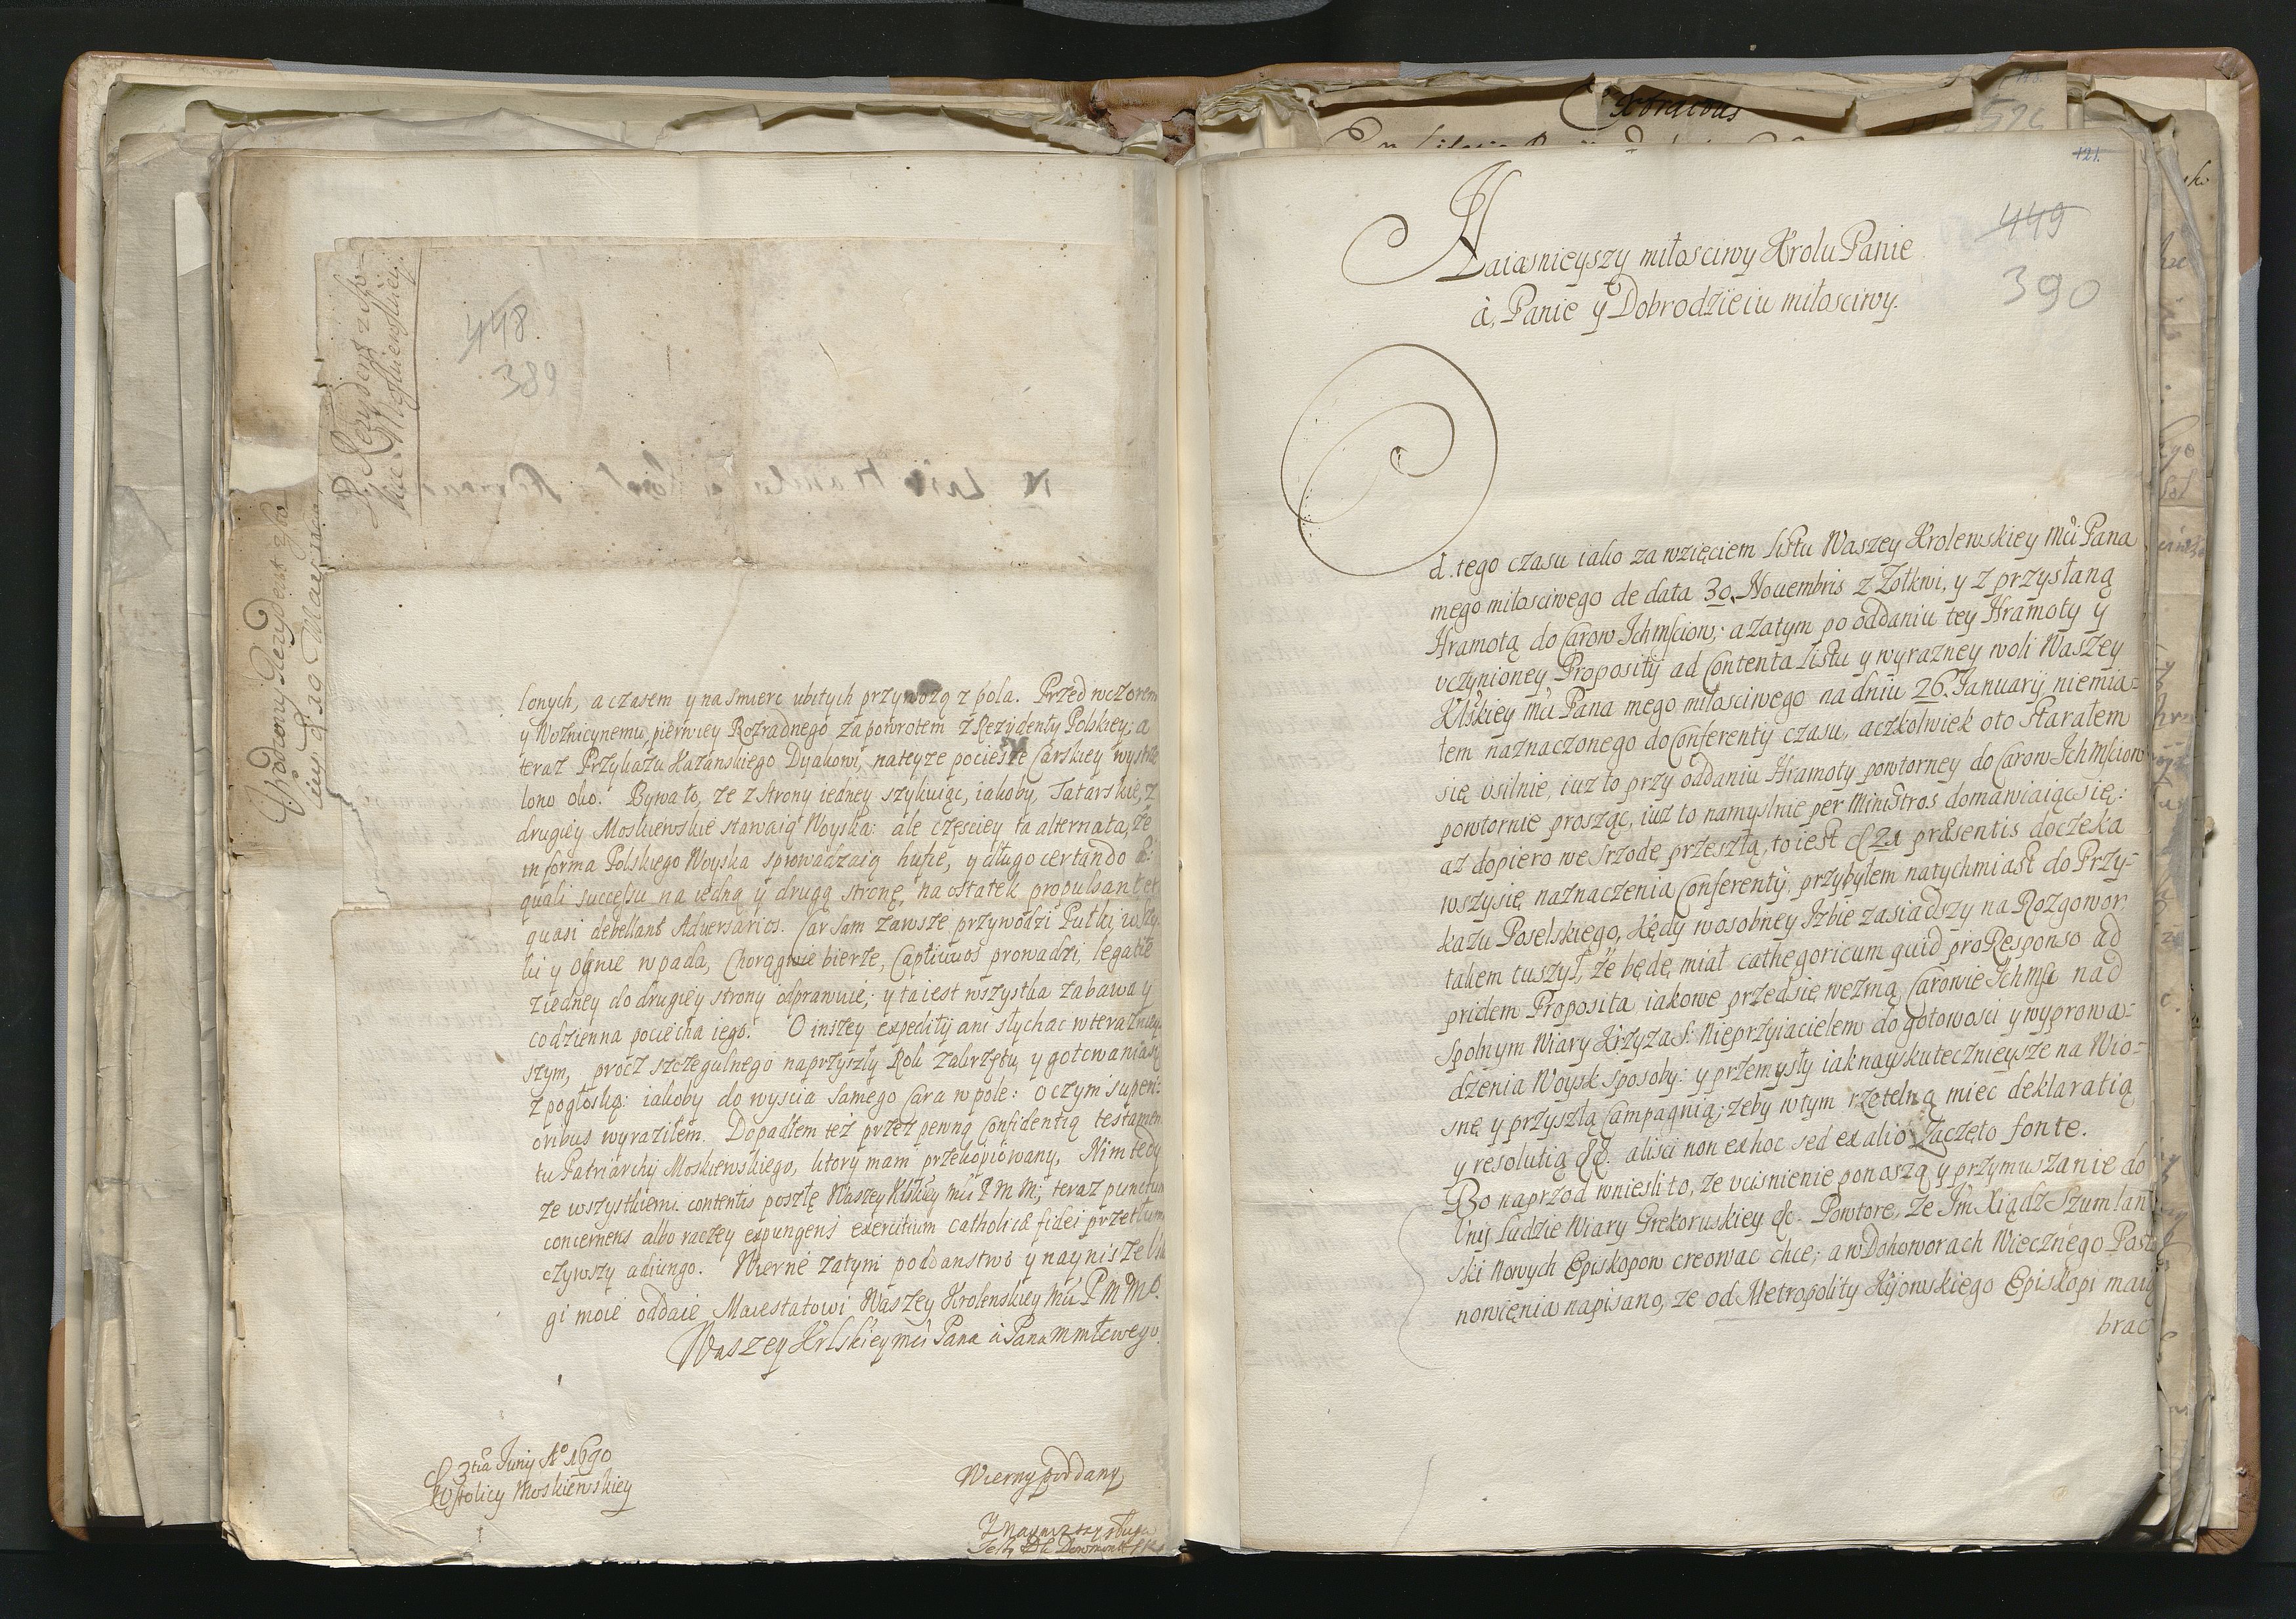 448.
389
P. Rezydent z Sto
licę Moskiewskiey.
Rezydent z Sto
lonych, a czasem y na smierc ubitych przywożą z pola. Przed wczorem
y Woznicynemu, pierwey Rozradnego za powrotem z Rezydenty Polskiey, a
teraz Przykazu Kazanskiego Dyakowi, nateyze pociesze Carskiey wystrze
lono oko. Bywało, ze z strony iedney szykuiąc, iakoby, Tatarskie, z
drugiey Moskiewskie stawaią Woyska: ale częsciey ta alternata, że
in forma Polskiego Woyska sprowadzaią hufie, y długo certando
quali successu na iedną y drugą stronę, na ostatek propulsant et
quasi debellant Adversarios. Car sam zawsze przywodzi Pułki, w szy
ki y Ognie wpada, Chorągwie bierze, Captiuos prowadzi, legatie
z iedney do drugiey strony odprawuie; y ta iest wszystka zabawa y
codzienna pociecha iego. O inszey expeditÿ ani słychac w terazniey
szym, procz szczegulnego na przyszły Rok zakrzętu y gotowania się
z pogłoską: iakoby do wyscia samego Cara w pole: o czym superi
oribus wyraziłem. Dopadłem też przez pewną Confidentią testamen
tu Patriarchÿ Moskiewskiego, ktory mam przekopiowany, Nim tedy
ze wszystkiemi contentis poszlę Waszey Klskiey Mci P M M; teraz punctum
concernens albo raczey expungens exercitium catholicæ fidei przetłum
czywszy adiungo. Wierne zatym poddanstwo y nayniższe Usłu
gi moie oddaię Maiestatowi Waszey Krolewskiey Mci P M M.
Waszey Krlskiey mci Pana á Pana mmłciwego
D 3tia Junÿ A° 1690
w Stolicy Moskiewskiey
Wierny poddany
y naynizszy sługa
121.
449
390
Naiasnieyszy miłosciwy Krolu Panie
á, Panie y Dobrodzieiu miłosciwy.
Od tego czasu iako za wzięciem listu Waszey Krolewskiey Mci Pana
mego miłosciwego de data 30. Nouembris z Żołkwi, y z przysłaną
Hramotą do Carow Ichmsciow; a zatym po oddaniu tey Hramoty y
vczynioney Propositÿ ad Contenta listu y wyrazney woli Waszey
Klskiey mci Pana mego miłosciwego na dniu 26. Januarÿ niemia=
łem naznaczonego do Conferentÿ czasu, aczkolwiek oto starałem
się vsilnie, iuz to przy oddaniu Hramoty powtorney do Carow Ichmsciow
powtornie prosząc, iuz to namyslnie per Ministros domawiaiąc się:
az dopiero we srzodę przeszłą, to iest d 21 præsentis doczeka
wszy się naznaczenia Conferentÿ, przybyłem natychmiast do Przy=
kazu Poselskiego, kędy w osobney Izbie zasiadszy na Rozgowor
takem tuszył, że będę miał cathegoricum quid pro Responso ad
pridem Proposita iakowe przedsię wezmą Carowie Ichmsc nad
spolnym Wiary Krzyża S. Nieprzyiacielem do gotowosci y wyprowa=
dzenia Woysk sposoby: y przemysły iak nayskutecznieysze na Wio=
snę y przyszłą Campagnią; zeby w tym rzetelną miec deklaratią
y resolutią &c. alisci non ex hoc sed ex alio Zaczęto fonte.
Bo naprzod wniesli to, ze vcisnienie ponoszą y przymuszanie do
Unÿ ludzie Wiary Grekoruskiey &c. Powtore, ze Jm Xiądz Szumlan
ski Nowych Episkopow creowac chce; a w Dohoworach Wiecznego Posta
nowienia napisano, ze od Metropolity Kÿowskiego Episkopi maią
brac